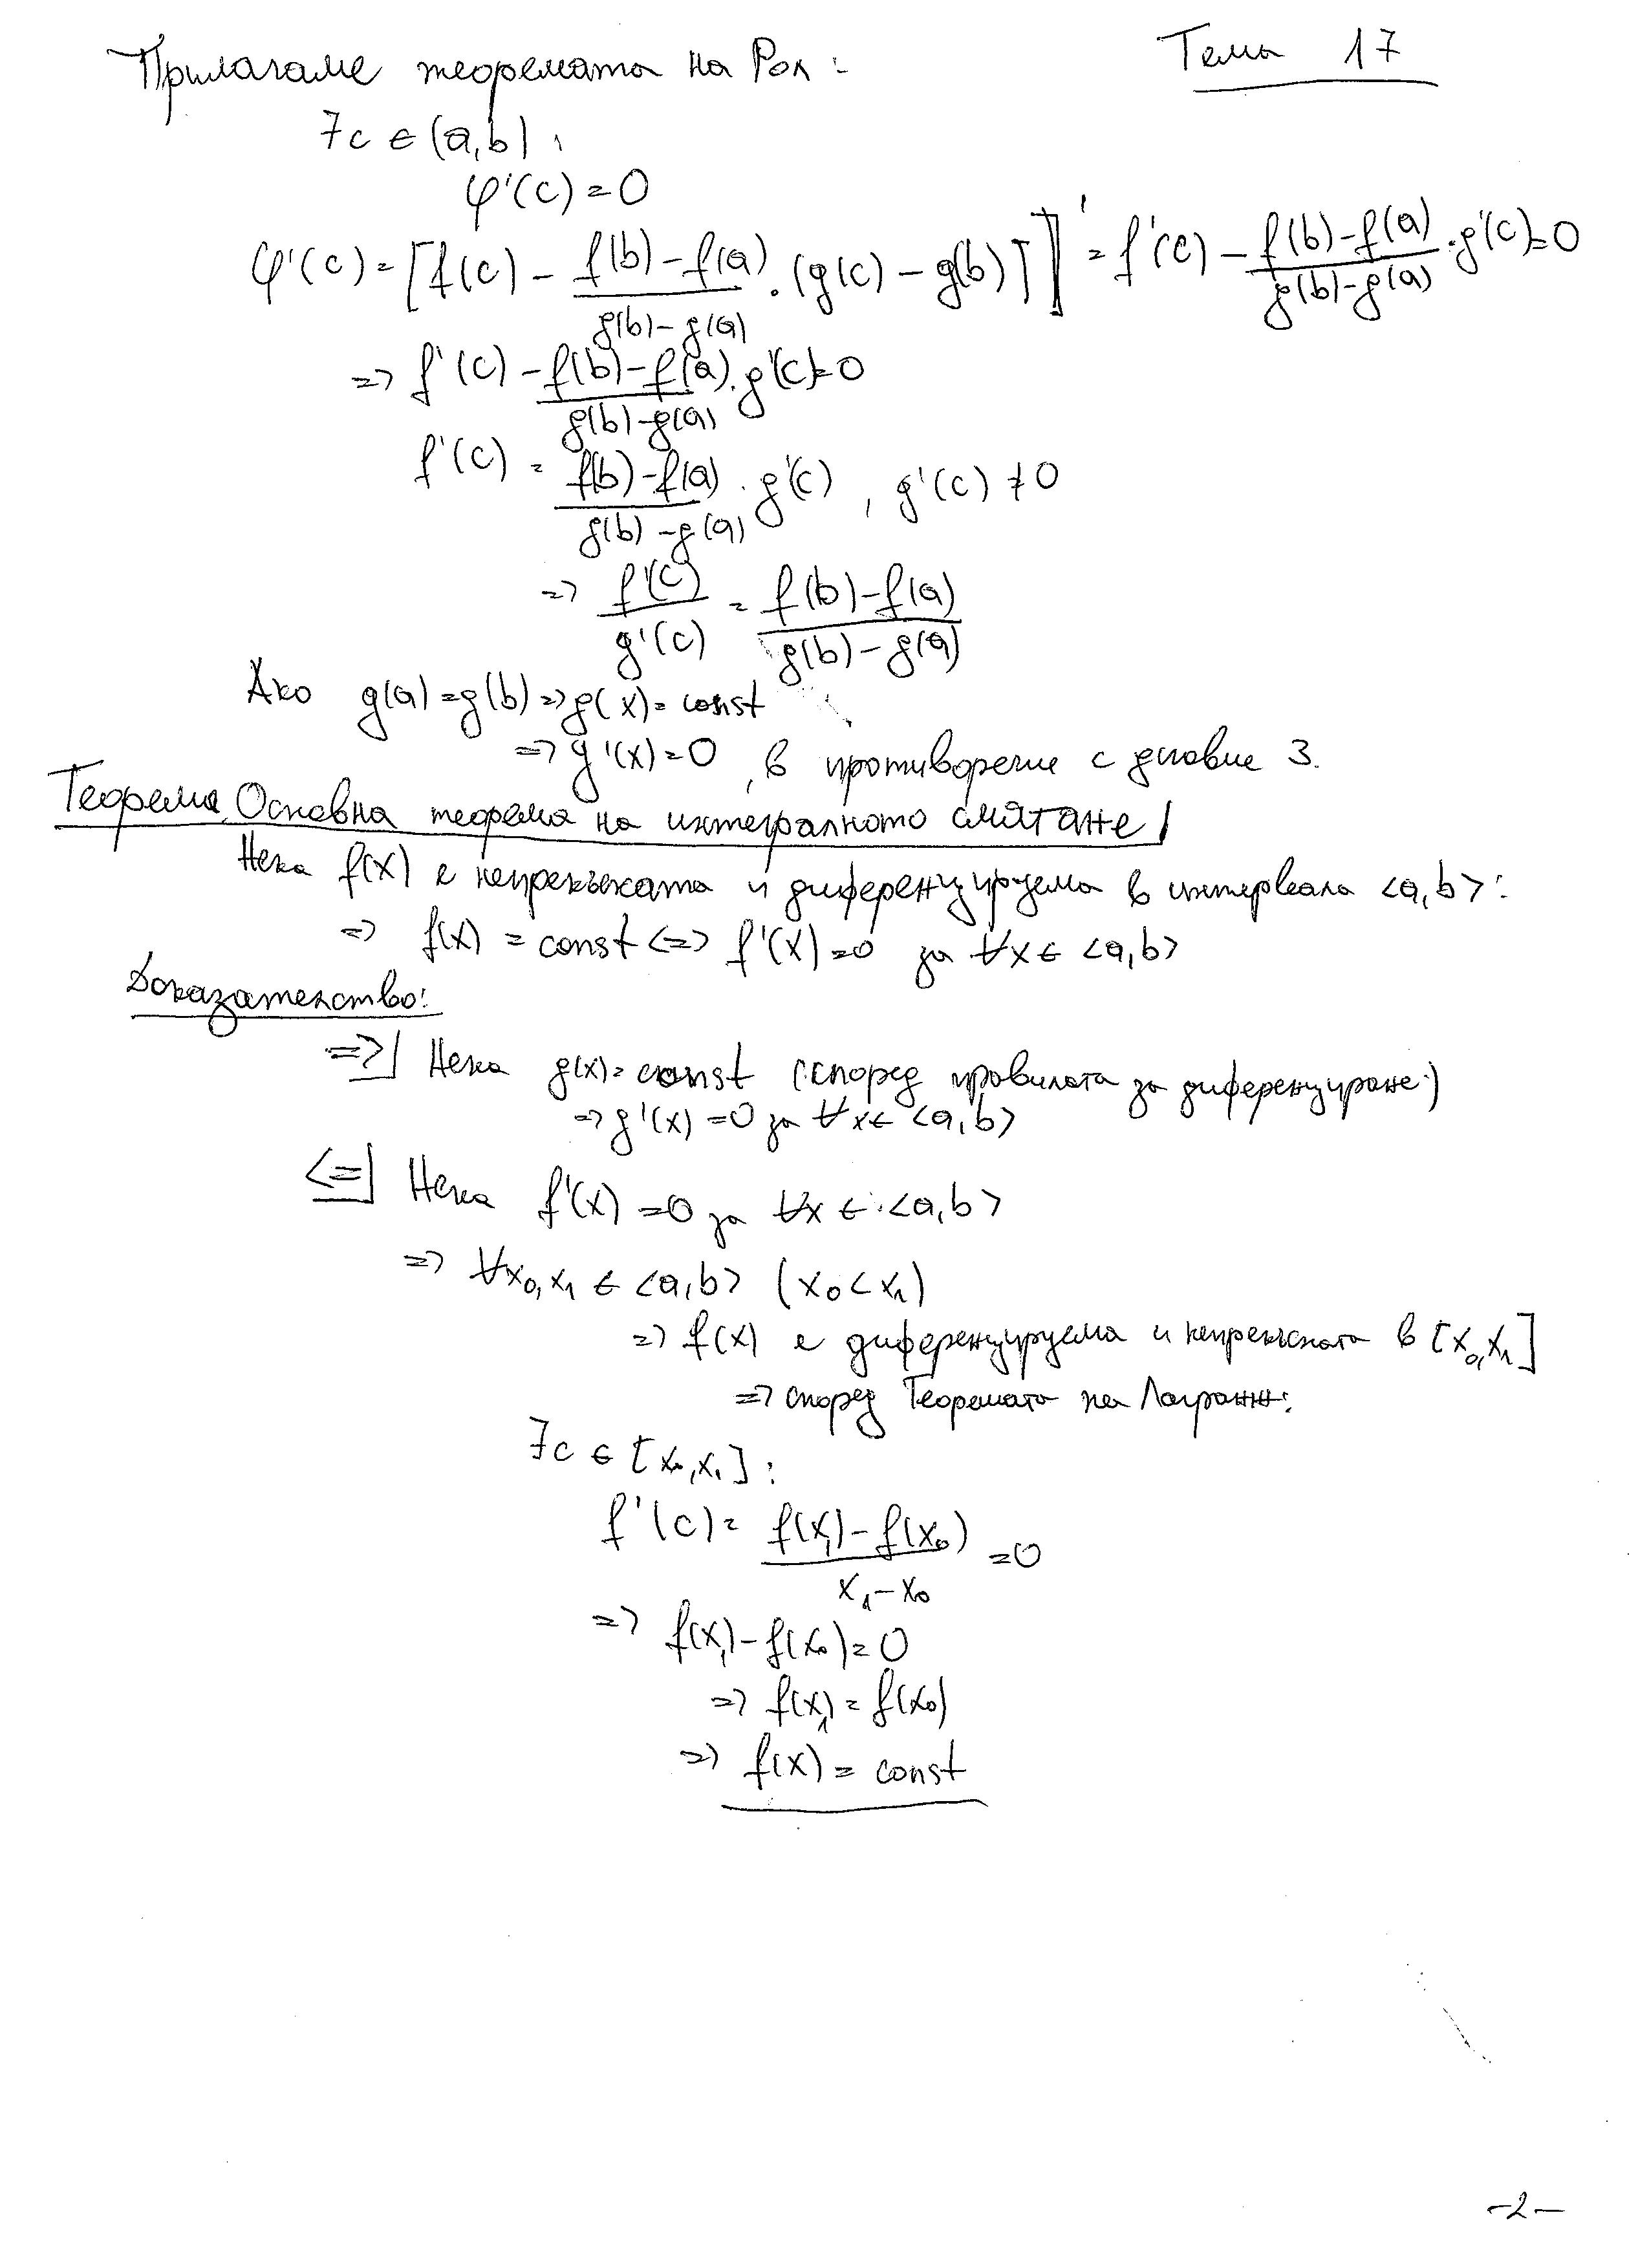 Прилагаме теоремата на Рол: Тема 17
∃c ∈ (a,b):
φ'(c) = 0
φ'(c) = [f(c) - \frac{f(b)-f(a)}{g(b)-g(a)} . (g(c) - g(b))]' = f'(c) - \frac{f(b)-f(a)}{g(b)-g(a)} . g'(c) = 0
=> f'(c) - \frac{f(b)-f(a)}{g(b)-g(a)} . g'(c) = 0
f'(c) = \frac{f(b)-f(a)}{g(b)-g(a)} . g'(c) , g'(c) ≠ 0
=> \frac{f'(c)}{g'(c)} = \frac{f(b)-f(a)}{g(b)-g(a)}
Ако g(a) = g(b) => g(x) = const
=> g'(x) = 0, в противоречие с условие 3.
Теорема Основна теорема на интегралното смятане/
Нека f(x) е непрекъсната и диференцируема в интервала <a,b>:
=> f(x) = const <=> f'(x) = 0 за ∀x ∈ <a,b>
Доказателство:
=>] Нека g(x) = const (според правилата за диференциране)
=> g'(x) = 0 за ∀x ∈ <a,b>
<=] Нека f'(x) = 0 за ∀x ∈ <a,b>
=> ∀x₀,x₁ ∈ <a,b> (x₀ < x₁)
=> f(x) е диференцируема и непрекъсната в [x₀,x₁]
=> според Теоремата на Лагранж:
∃c ∈ [x₀,x₁]:
f'(c) = \frac{f(x₁)-f(x₀)}{x₁-x₀} = 0
=> f(x₁) - f(x₀) = 0
=> f(x₁) = f(x₀)
=> f(x) = const
-2-